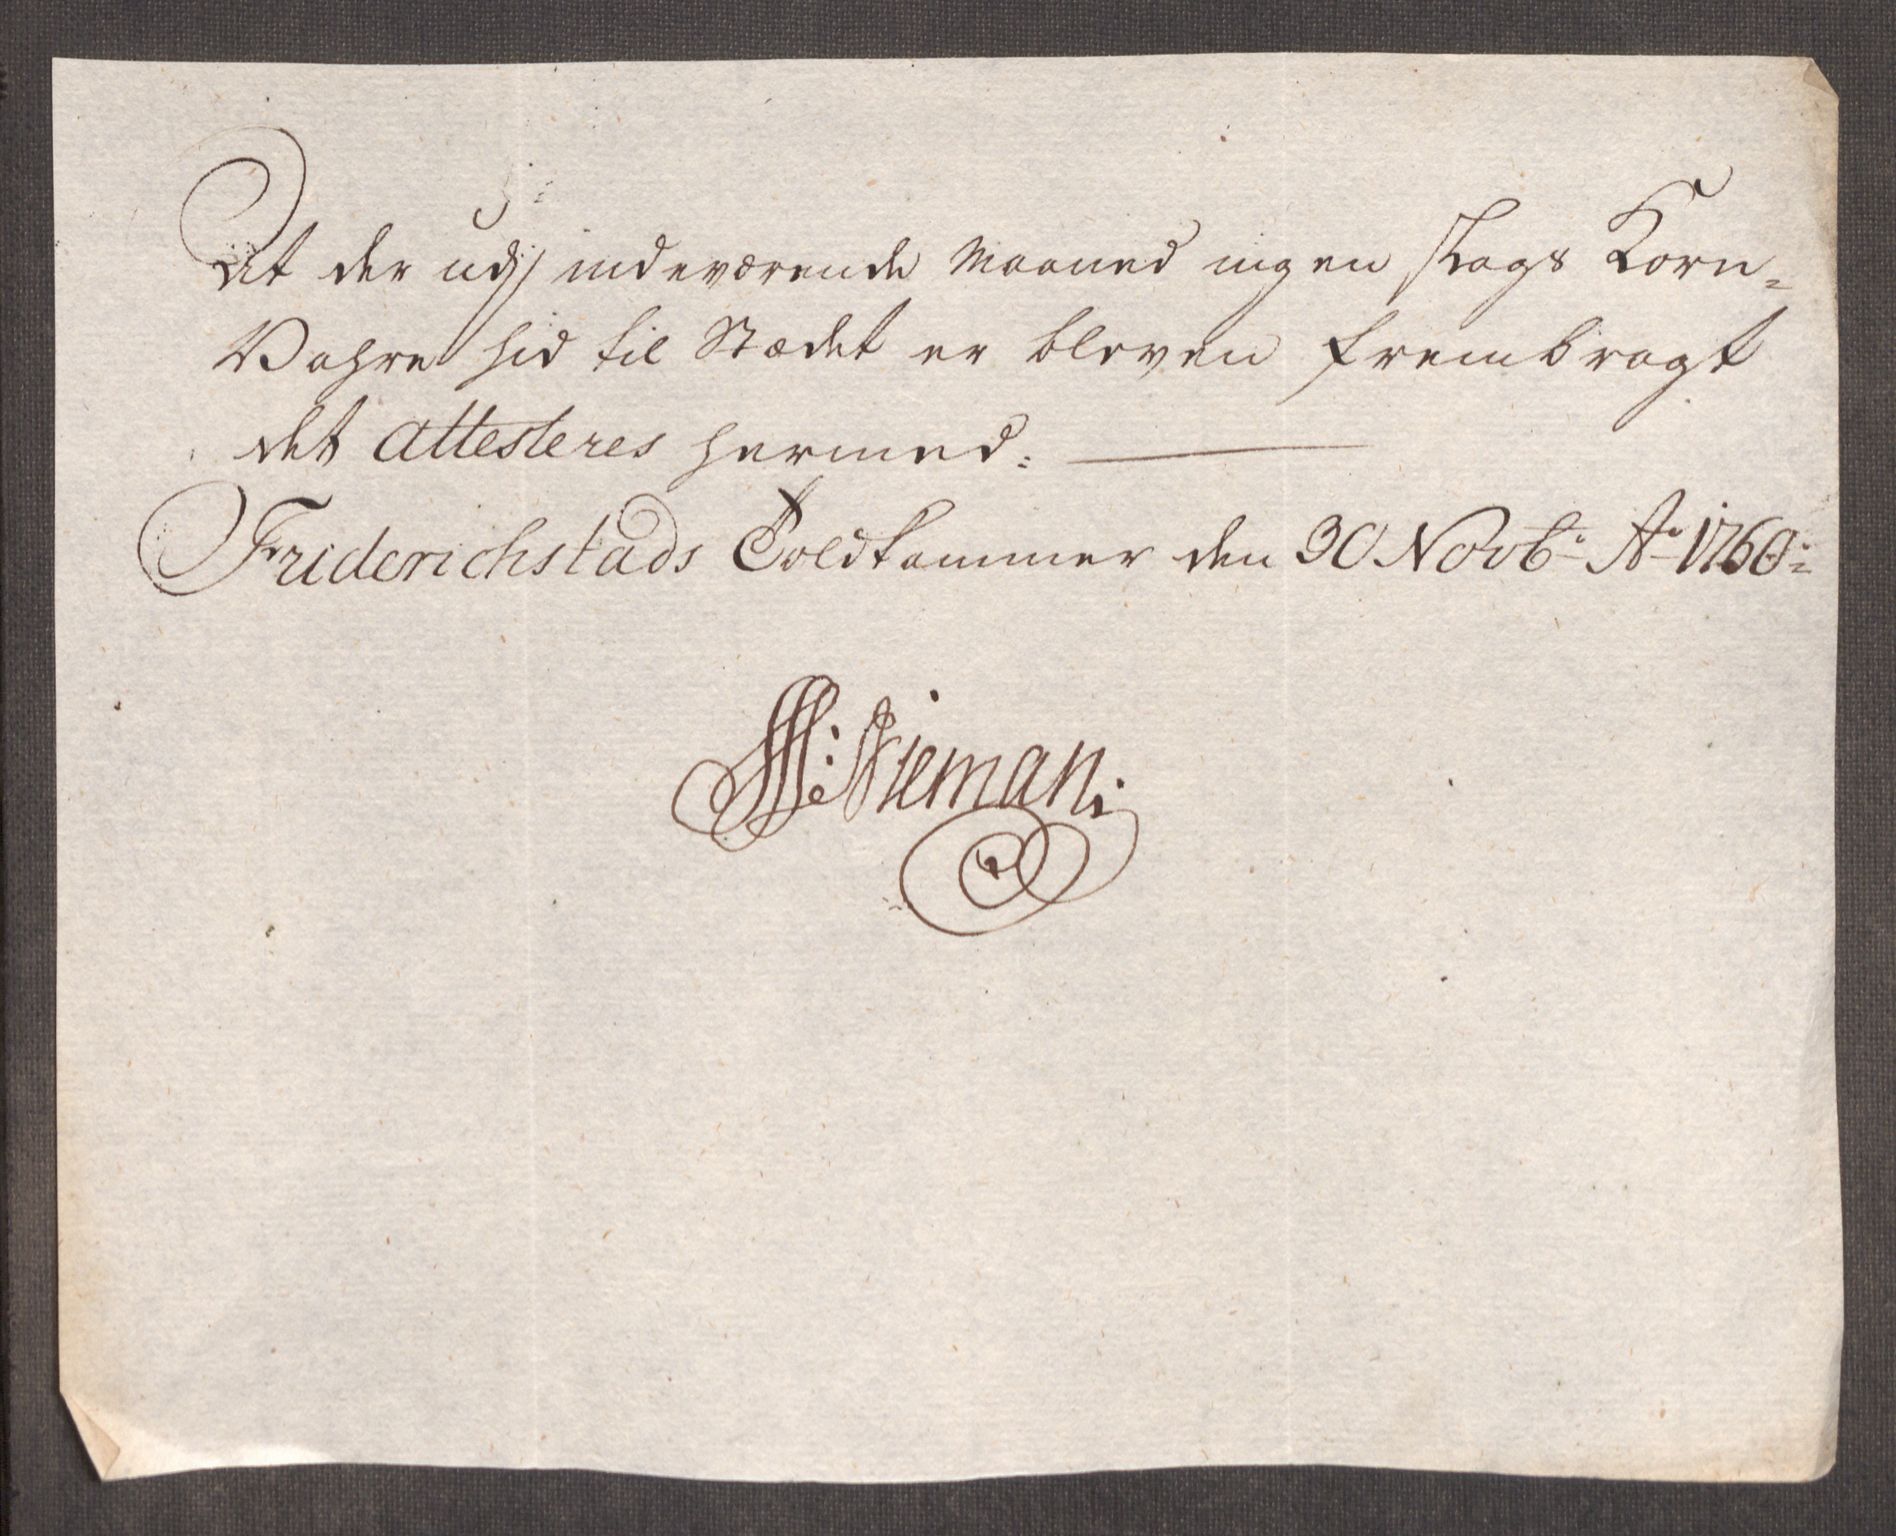 At der udj indeværende Maaned ingen slags Korn=
Vahre hid til Stædet er bleven frembragt
det attesteres hermed:
Friderichstads Toldkammer den 30 Novb: Ao 1760:
Nieman: